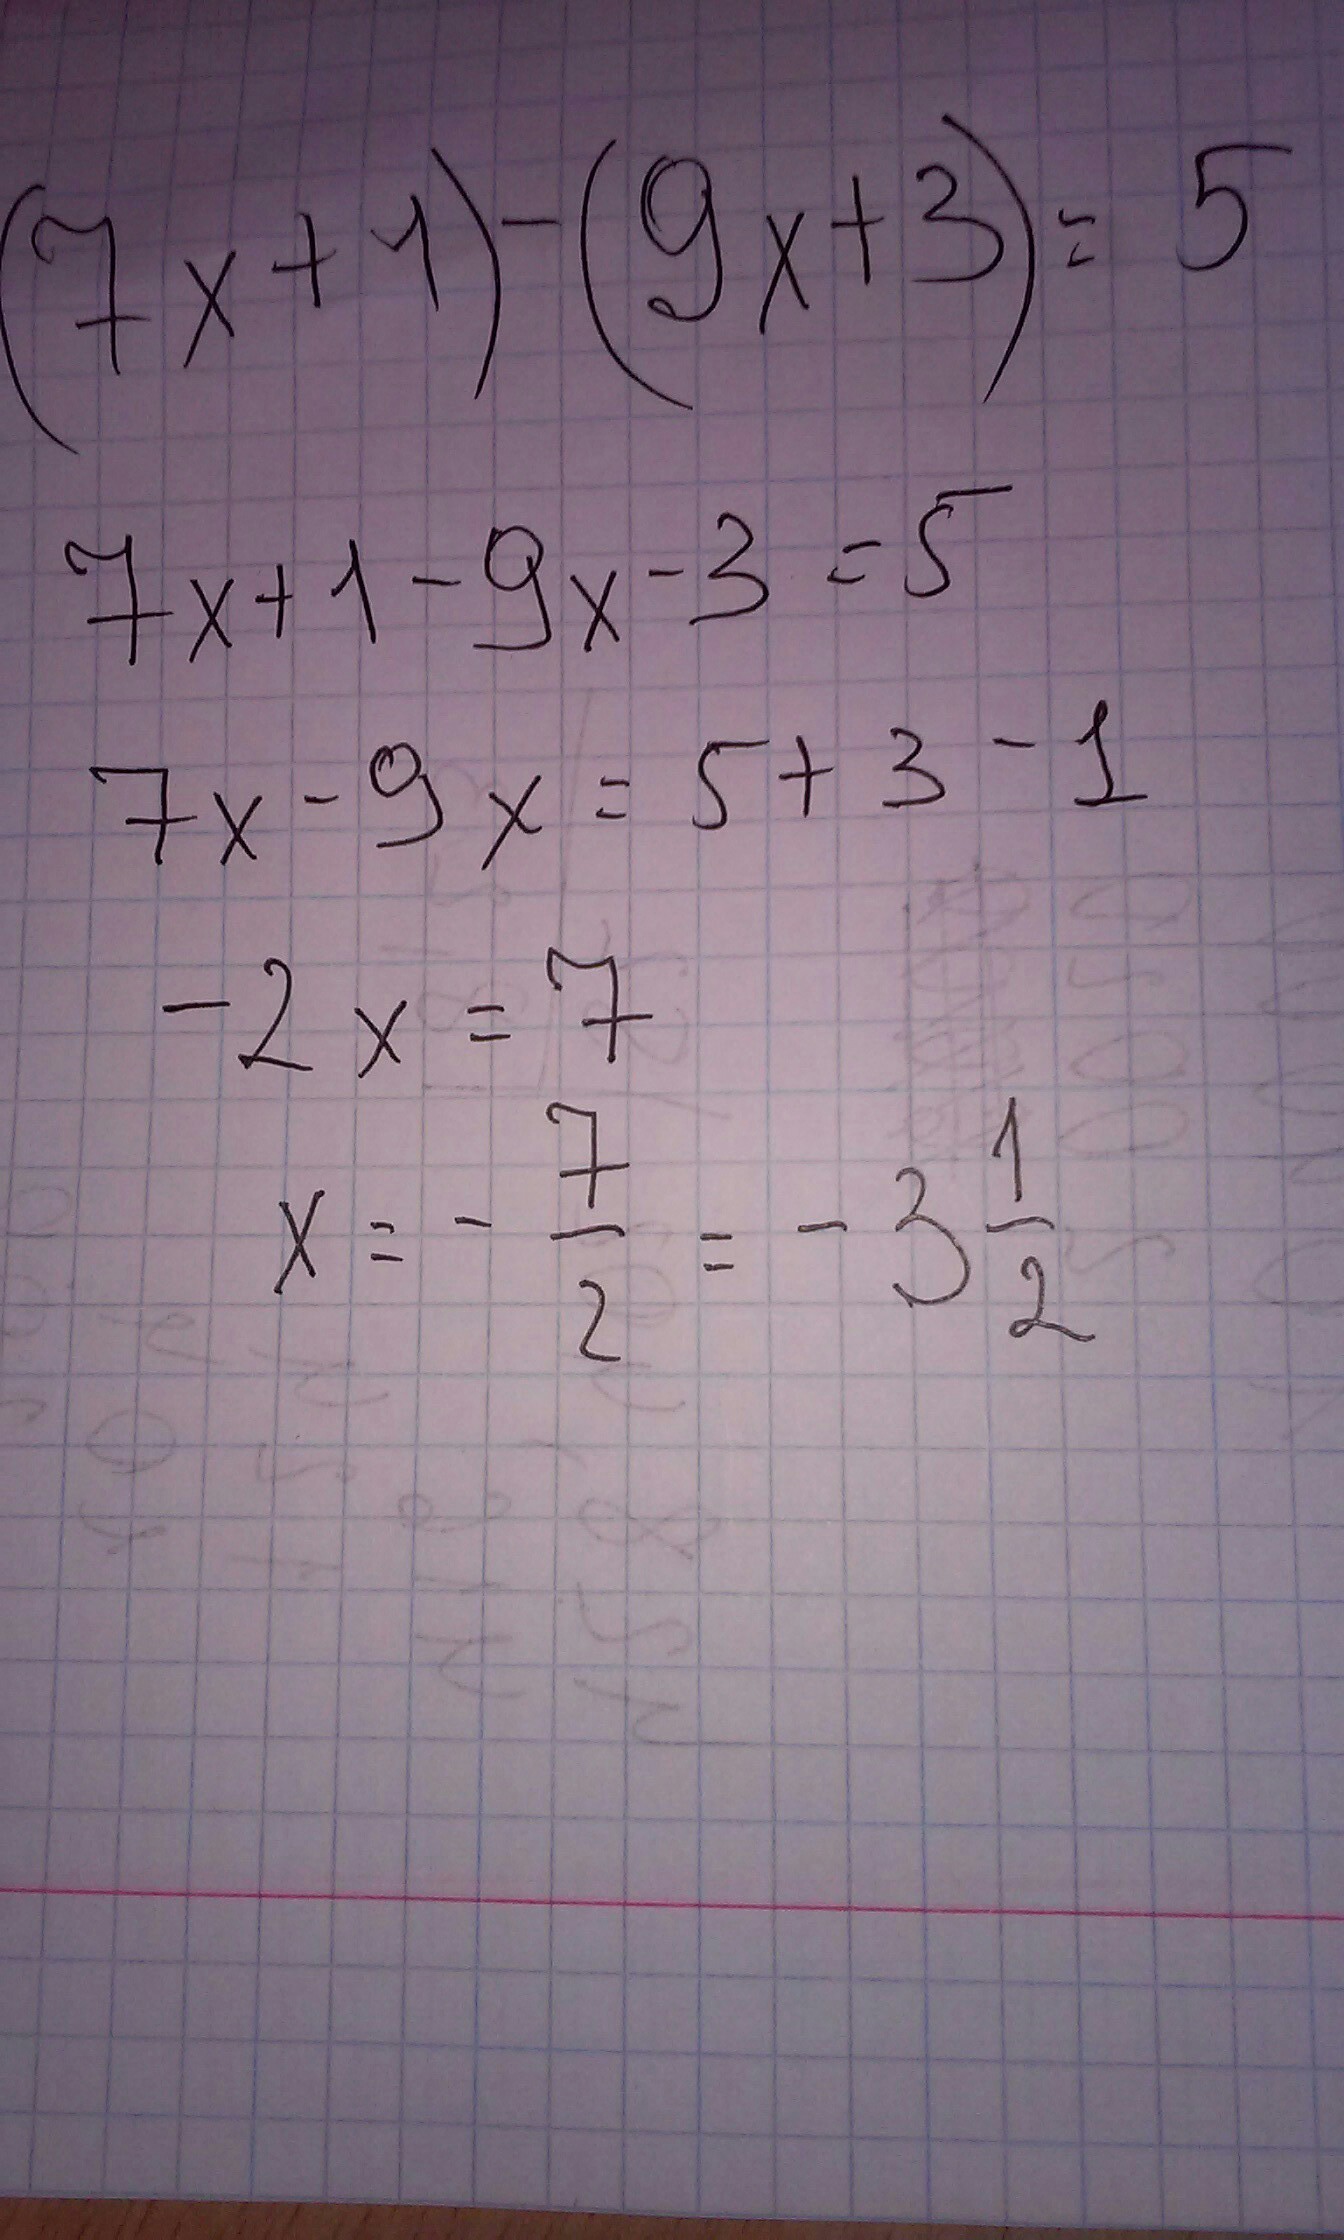 (7x+1)-(9x+3)=5
7x+1-9x-3=5
7x-9x=5+3-1
-2x=7
x=-7/2=-3 1/2